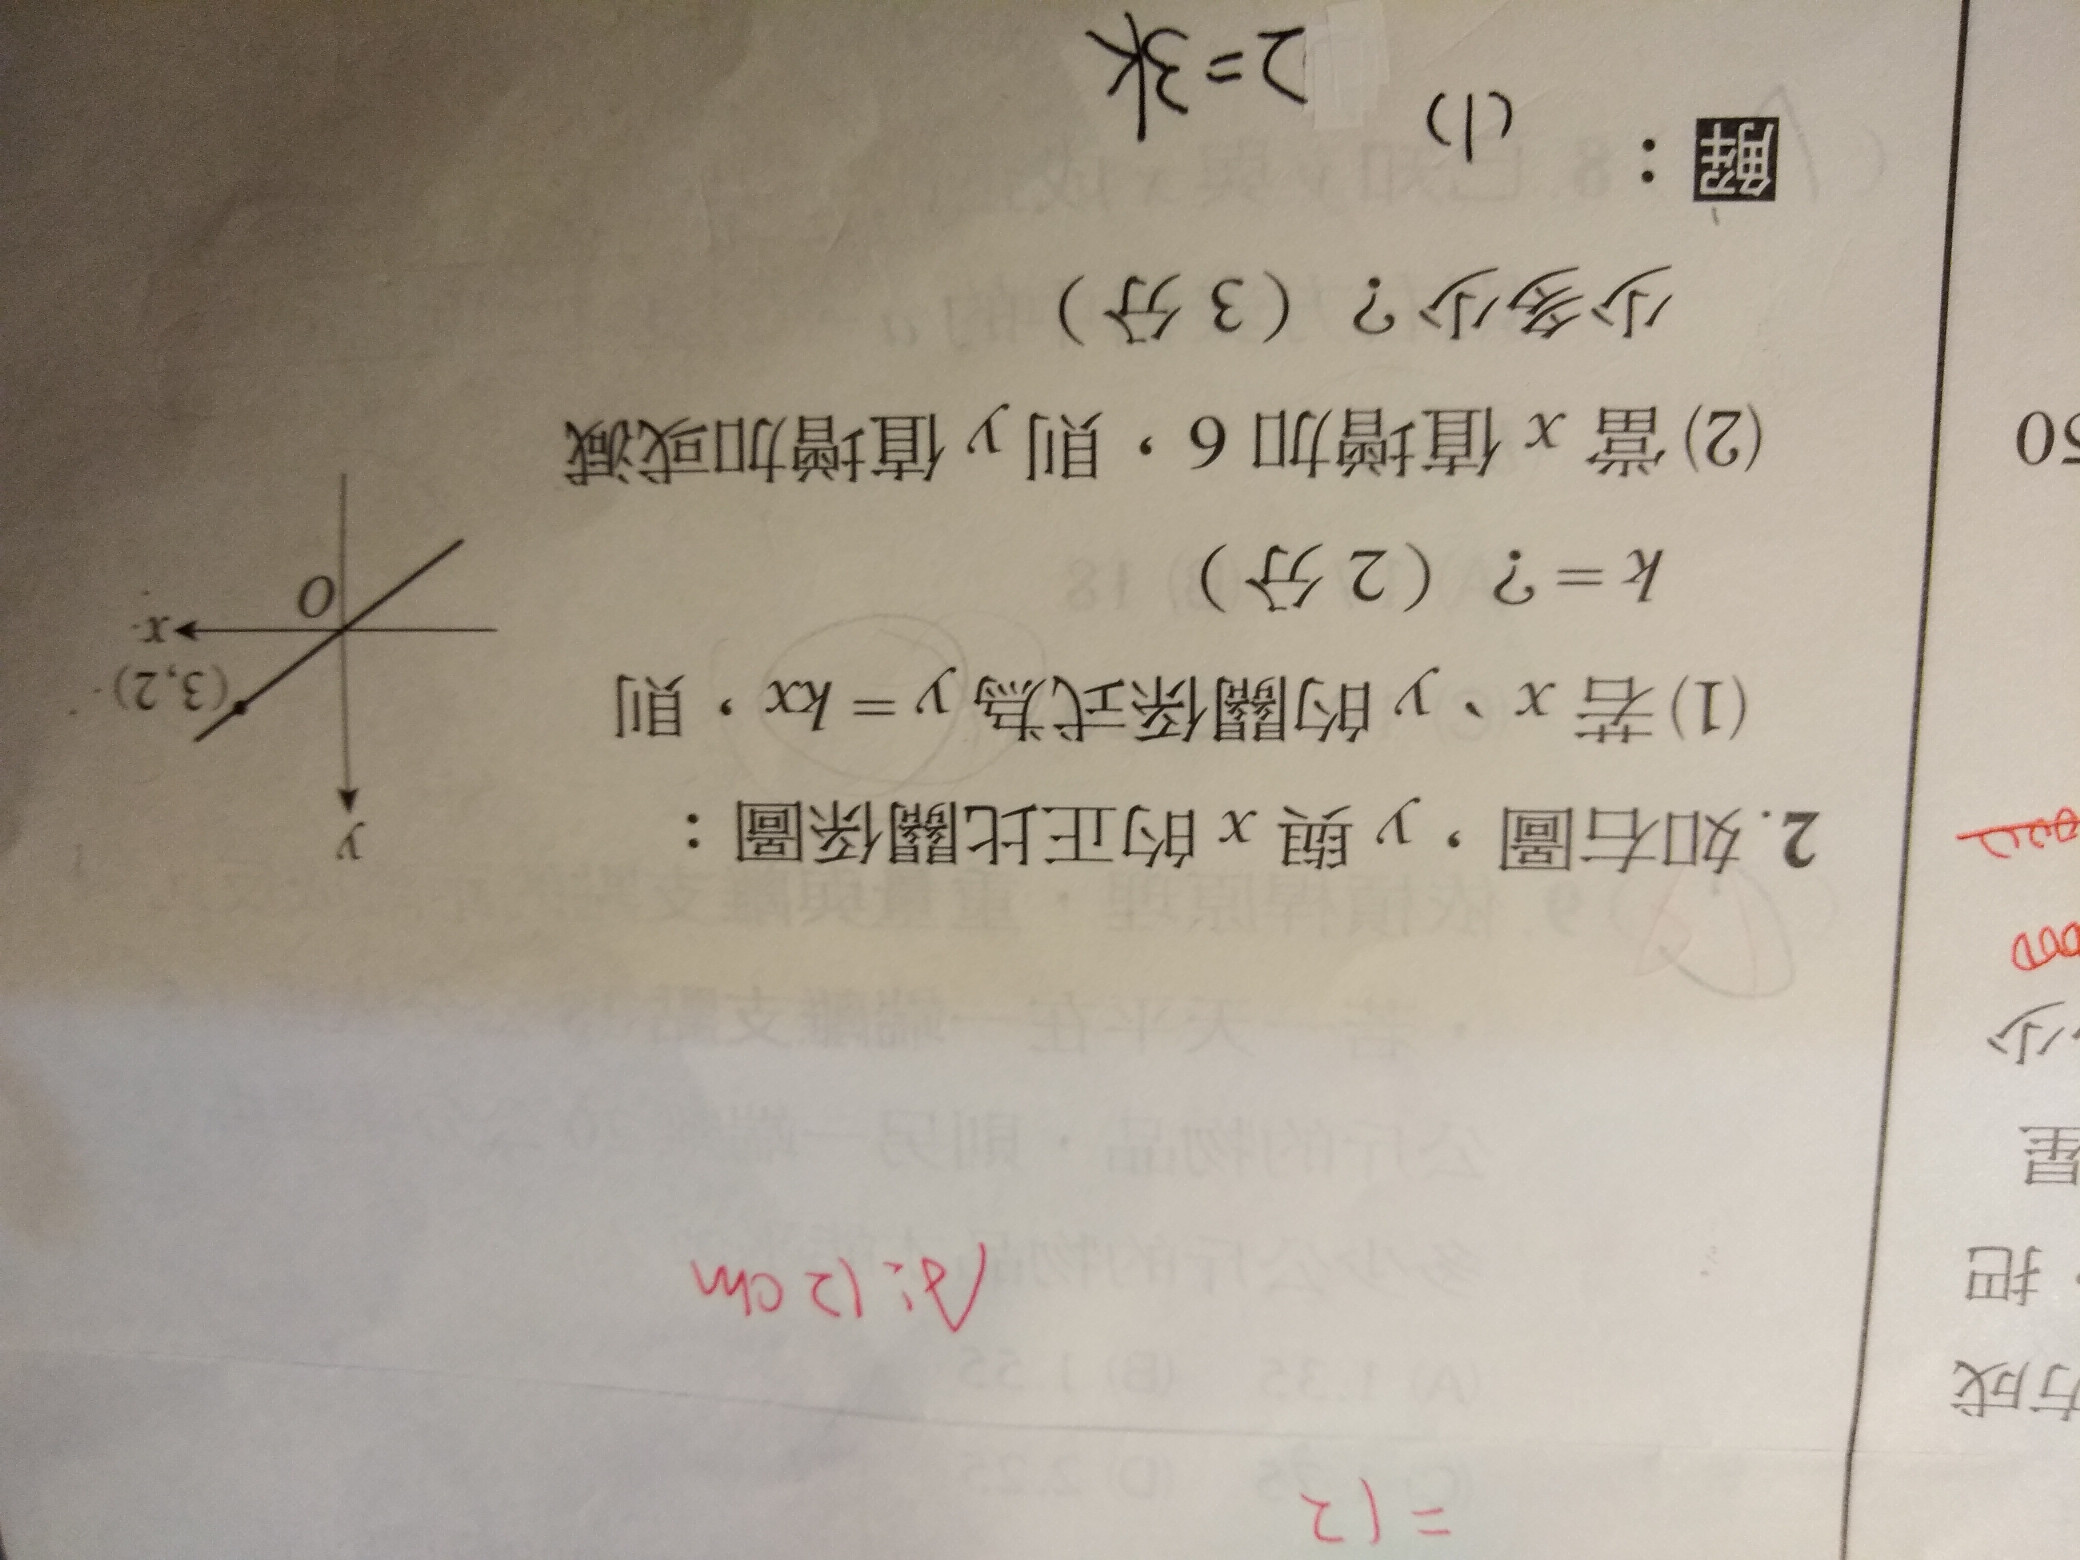 = 12
A: 12 cm
2. 如右圖，y 與 x 的正比關係圖：
(1) 若 x、y 的關係式為 y = kx，則
k = ?（2 分）
(2) 當 x 值增加 6，則 y 值增加或減
少多少？（3 分）
y
(3,2)
x
O
解：
(1)
2=3k
方成
，把
星
少
50